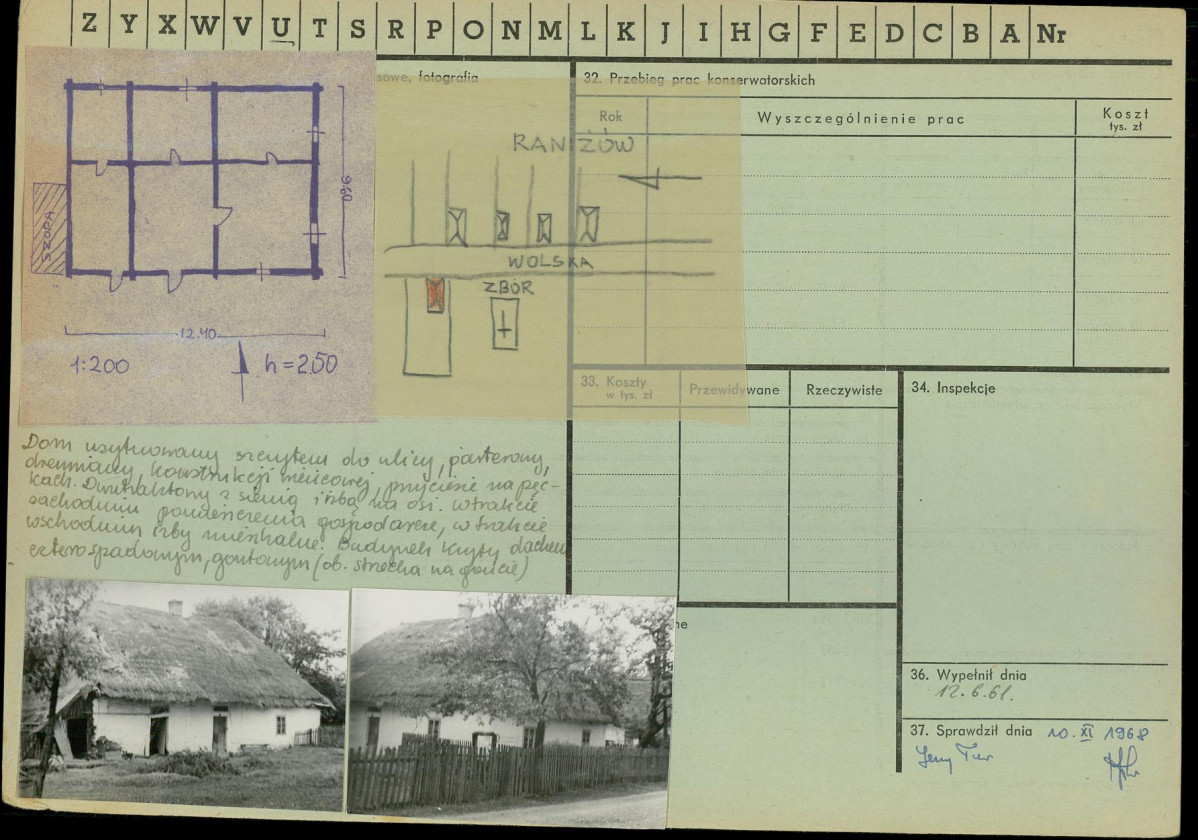 Z Y X W V U T S R P O N M L K J I H G F E D C B A Nr
sowe, fotografia
32. Przebieg prac konserwatorskich
Rok
Wyszczególnienie prac
Koszt
tys. zł
RANIŻÓW
WOLSKA
ZBÓR
SZOPA
9.60
12.40
1:200
h = 2.50
33. Koszty
w tys. zł
Przewidywane
Rzeczywiste
34. Inspekcje
Dom usytuowany szczytem do ulicy, parterowy,
drewniany, konstrukcji wieńcowej, przyciesie na pec-
kach. Dwutraktowy z sienią i izbą na osi. W trakcie
zachodnim pomieszczenia gospodarcze, w trakcie
wschodnim izby mieszkalne. Budynek kryty dachem
czterospadowym, gontowym (ob. strzecha na goncie)
ne
36. Wypełnił dnia
12.6.61.
37. Sprawdził dnia 10. XI 1968
Jerzy Tur